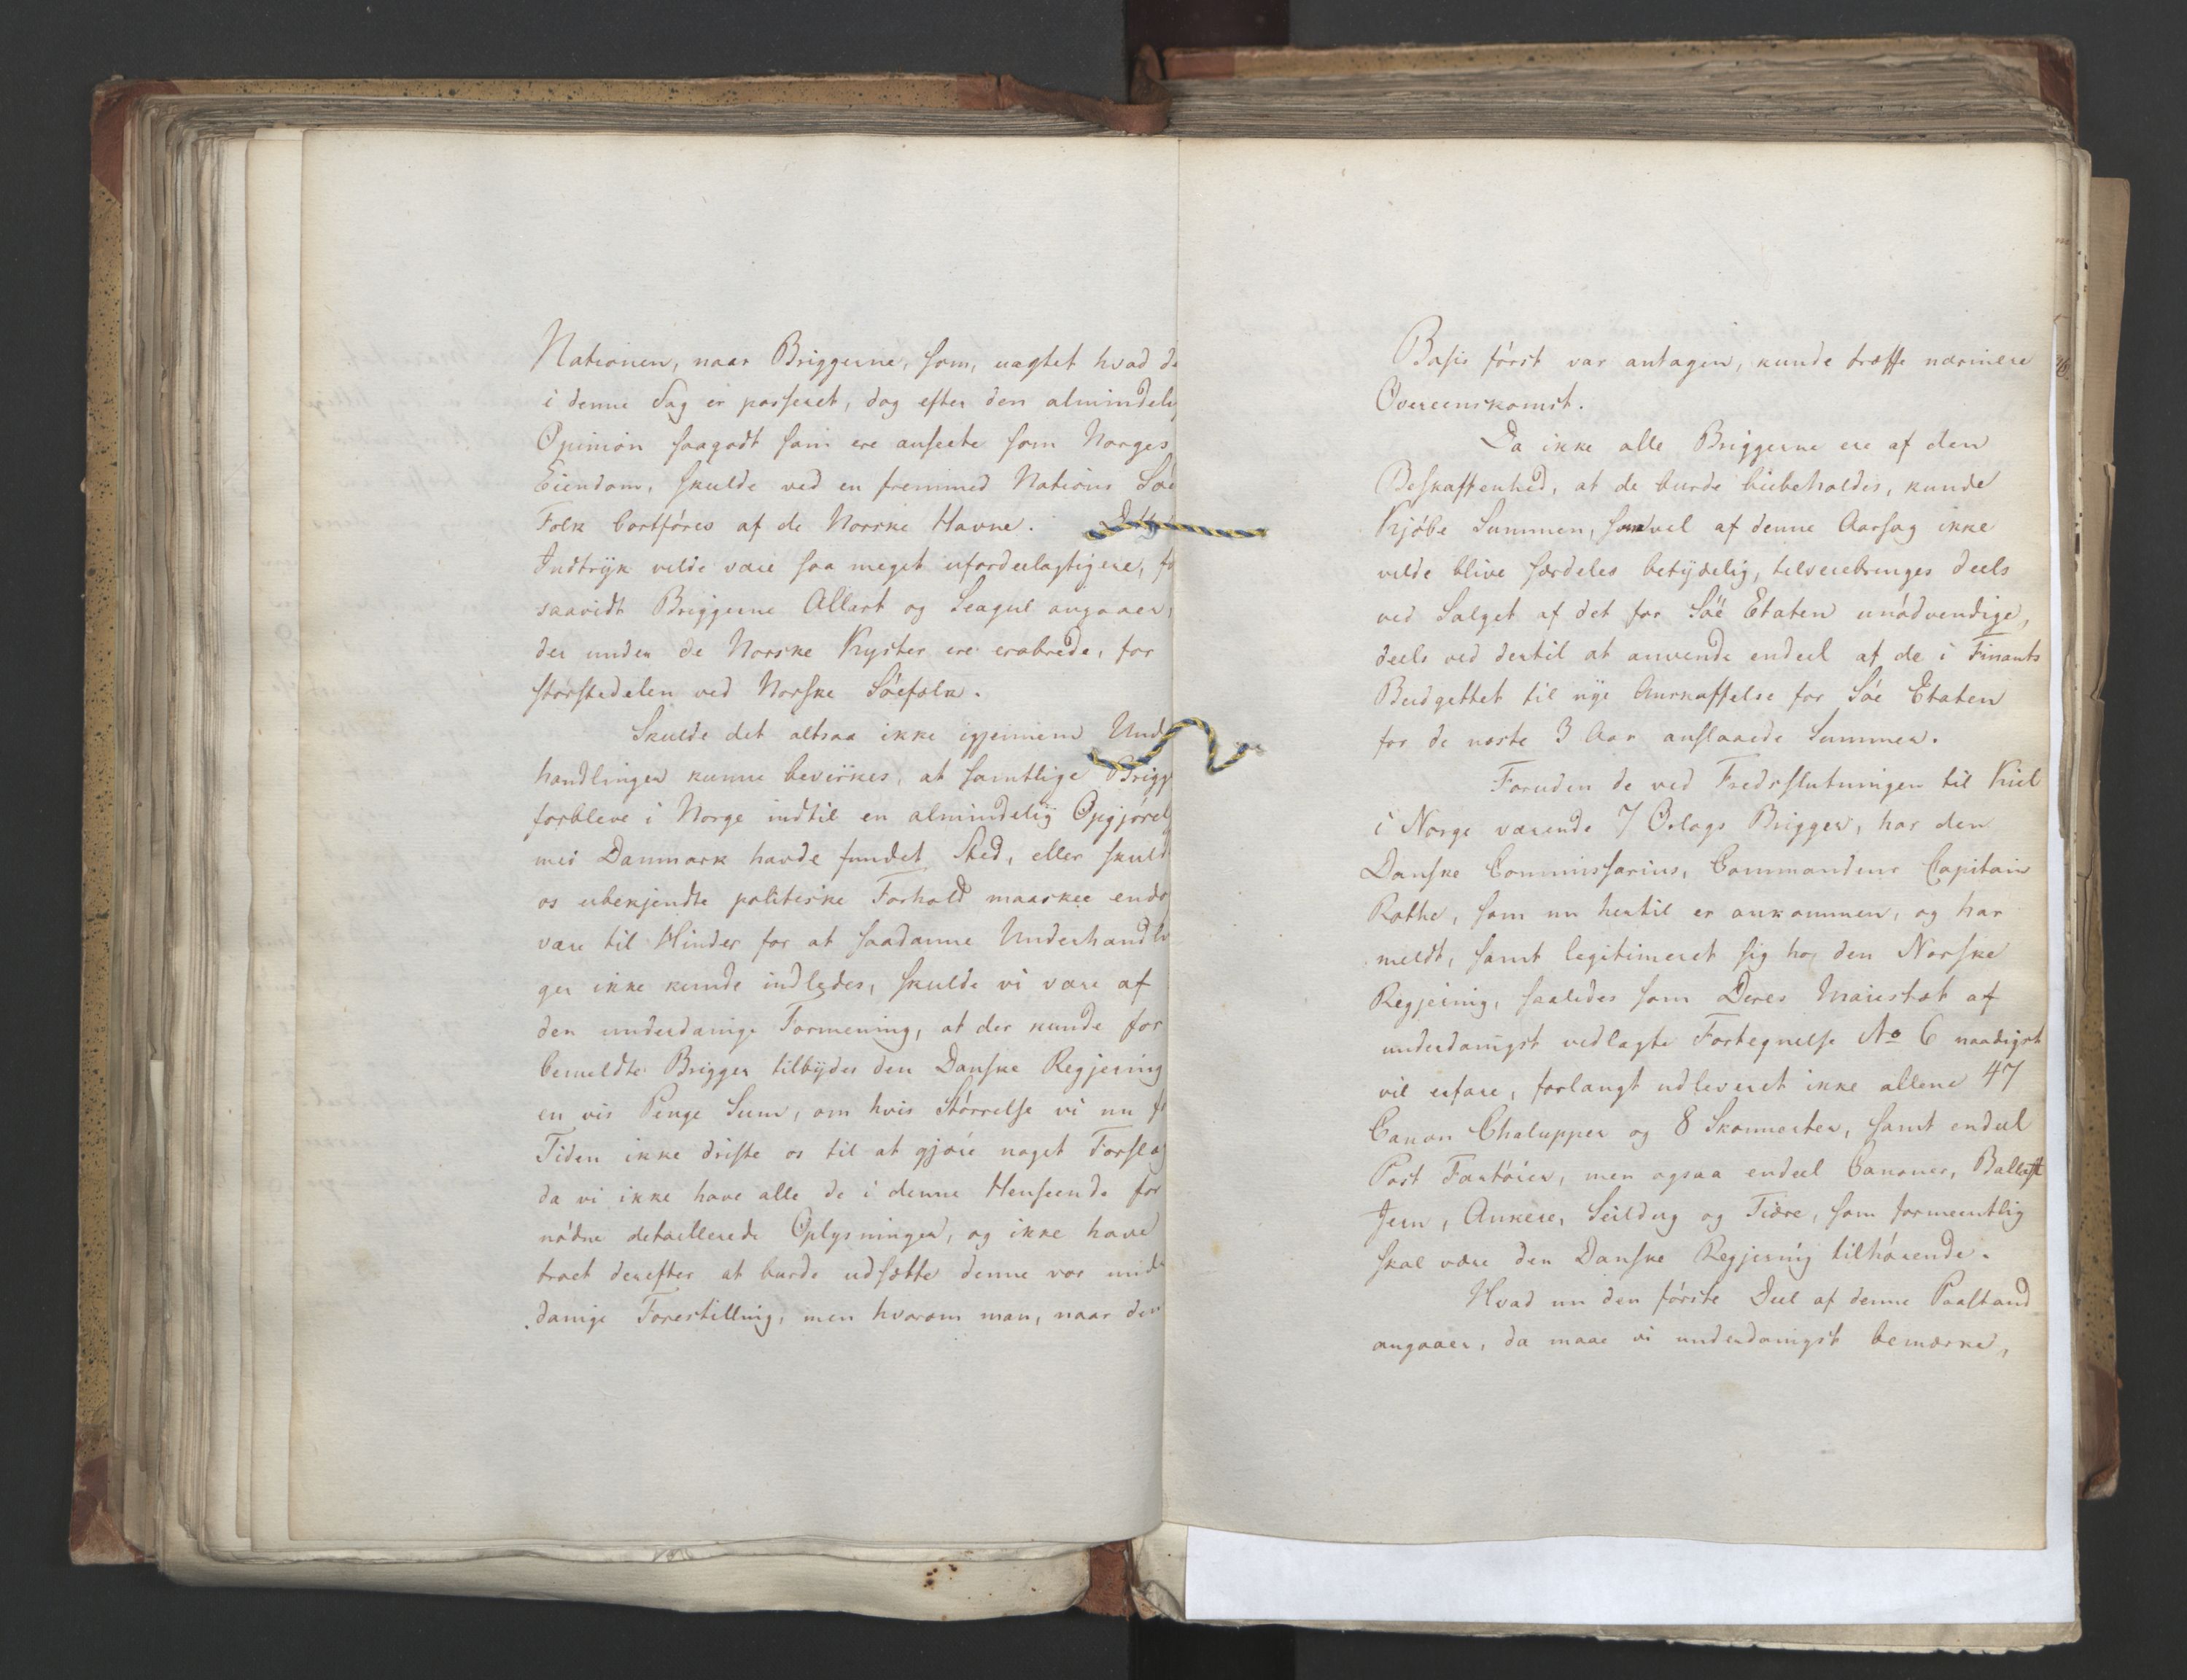 Nationen, naar Briggerne, som, uagtet hvad de
i denne Sag er passeret, dog efter den almindeli
Opinion saagodt som ere ansete som Norges
Eiendom, skulde ved en fremmed Nations Søe
Folk bortføres af de Norske Havne.
Indtryk vilde være saa meget ufordeelagtigere, fo
saavidt Briggerne Allart og Seagul angaaer,
der under de Norske Kyster ere erobrede, for
størstedelen ved Norske Søefolk.
Skulde det altsaa ikke igjennem Und
handlinger kunne bevirkes, at samtlige Brigg
forbleve i Norge indtil en almindelig Opgjørel
med Danmark havde fundet Sted, eller skuld
os ubekjendte politiske Forhold maaskee endo
være til Hinder for at saadanne Underhandli
ger ikke kunde indledes, skulde vi være af
den underdanige Formening, at der kunde for
bemeldte Brigger tilbydes den Danske Regjering
en vis Penge Sum, om hvis Størrelse vi nu f
Tiden ikke driste os til at gjøre noget Forslag
da vi ikke have alle de i denne Henseende for
nødne detaillerede Oplysninger, og ikke have
troet derefter at burde udsætte denne vor unde
danige Forestilling, men hvorom man, naar den
Basis først var antagen, kunde træffe nærmere
Overeenskomst.
Da ikke alle Briggerne ere af den
Beskaffenhed, at de burde biebeholdes, kunde
Kjøbe Summen, somvel af denne Aarsag ikke
vilde blive særdeles betydelig, tilveiebringes deels
ved Salget af det for Søe Etaten unødvendige,
deels ved dertil at anvende endeel af de i Finants
Budgettet til nye Anskaffelse for Søe Etaten
for de næste 3 Aar anslaaede Summer.
Foruden de ved Fredsslutningen til Kiel
i Norge værende 7 Orlogs Brigger, har den
Danske Commissarius, Commandeur Capitain
Rothe, som nu hertil er ankommen, og har
meldt, samt legitimeret sig hos den Norske
Regjering, saaledes som Deres Majestæt af
underdanigst vedlagte Fortegnelse No 6 naadigst
vil erfare, forlangt udleveret ikke allene 47
Canon Chalupper og 8 Skonnerter, samt endeel
Post Fartøier, men ogsaa endeel Canoner, Ballast
Jern, Ankere, Seildug og Tiære, som formeentlig
skal være den Danske Regjering tilhørende.
Hvad nu den første Deel af denne Paastand
angaaer, da maae vi underdanigst bemærke,